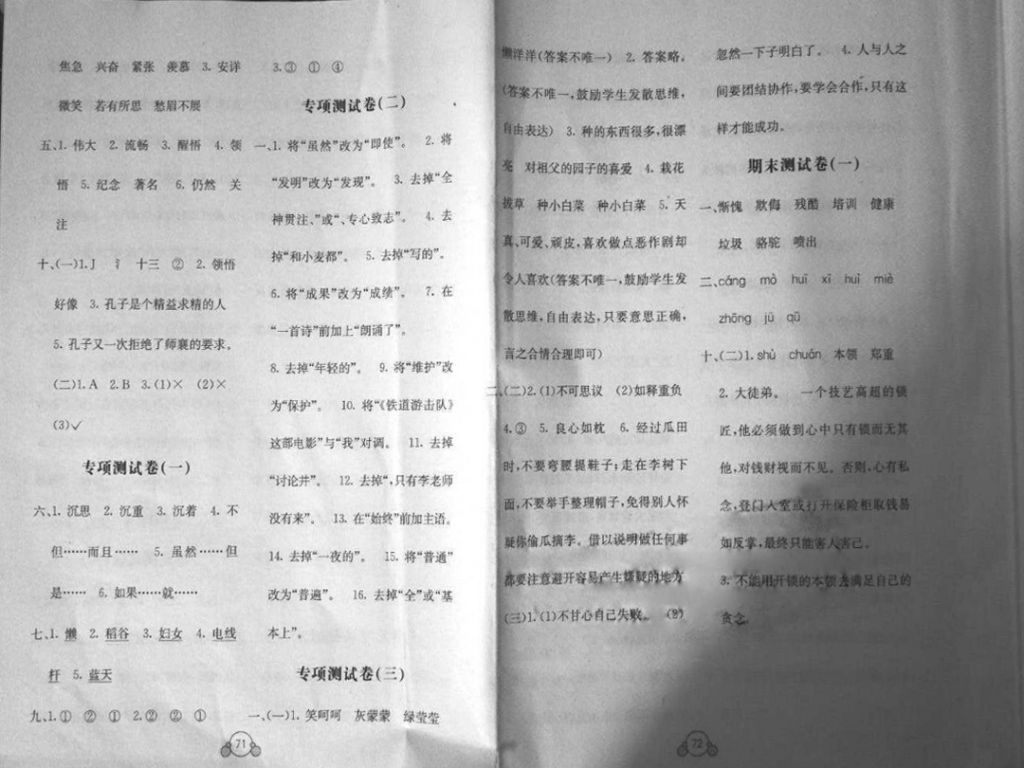 焦急 兴奋 紧张 羡慕 3. 安详
微笑 若有所思 愁眉不展
五、1. 伟大 2. 流畅 3. 醒悟 4. 领
悟 5. 纪念 著名 6. 仍然 关
注
十、(一)1.J 十三 ② 2. 领悟
好像 3. 孔子是个精益求精的人
5. 孔子又一次拒绝了师襄的要求。
(二)1. A 2. B 3.(1)× (2)×
(3)✓
专项测试卷(一)
六、1. 沉思 2. 沉重 3. 沉着 4. 不
但……而且…… 5. 虽然……但
是…… 6. 如果……就……
七、1. 懒 2. 稻谷 3. 妇女 4. 电线
杆 5. 蓝天
九、1.① ② ① 2.② ② ①
3.③ ① ④
专项测试卷(二)
一、1. 将“虽然”改为“即使”。 2. 将
“发明”改为“发现”。 3. 去掉“全
神贯注、”或“、专心致志”。 4. 去
掉“和小麦都”。 5. 去掉“写的”。
6. 将“成果”改为“成绩”。 7. 在
“一首诗”前加上“朗诵了”。
8. 去掉“年轻的”。 9. 将“维护”改
为“保护”。 10. 将“《铁道游击队》
这部电影”与“我”对调。 11. 去掉
“讨论并”。 12. 去掉“,只有李老师
没有来”。 13. 在“始终”前加主语。
14. 去掉“一夜的”。 15. 将“普通”
改为“普遍”。 16. 去掉“全”或“基
本上”。
专项测试卷(三)
一、(一)1. 笑呵呵 灰蒙蒙 绿莹莹
71
懒洋洋(答案不唯一) 2. 答案略。
(答案不唯一,鼓励学生发散思维,
自由表达) 3. 种的东西很多,很漂
亮 对祖父的园子的喜爱 4. 栽花
拔草 种小白菜 种小白菜 5. 天
真、可爱、顽皮,喜欢做点恶作剧却
令人喜欢(答案不唯一,鼓励学生发
散思维,自由表达,只要意思正确,
言之合情合理即可)
二、(二)2.(1)不可思议 (2)如释重负
4.③ 5. 良心如枕 6. 经过瓜田
时,不要弯腰提鞋子;走在李树下
面,不要举手整理帽子,免得别人怀
疑你偷瓜摘李。借以说明做任何事
都要注意避开容易产生嫌疑的地方
(三)1.(1)不甘心自己失败。 (2)
忽然一下子明白了。 4. 人与人之
间要团结协作,要学会合作,只有这
样才能成功。
期末测试卷(一)
一、惭愧 欺侮 残酷 培训 健康
垃圾 骆驼 喷出
二、cáng mò huī xī huì miè
zhōng jū qū
十、(二)1. shù chuán 本领 郑重
2. 大徒弟。 一个技艺高超的锁
匠,他必须做到心中只有锁而无其
他,对钱财视而不见。否则,心有私
念,登门入室或打开保险柜取钱易
如反掌,最终只能害人害己。
3. 不能用开锁的本领去满足自己的
贪念。
72